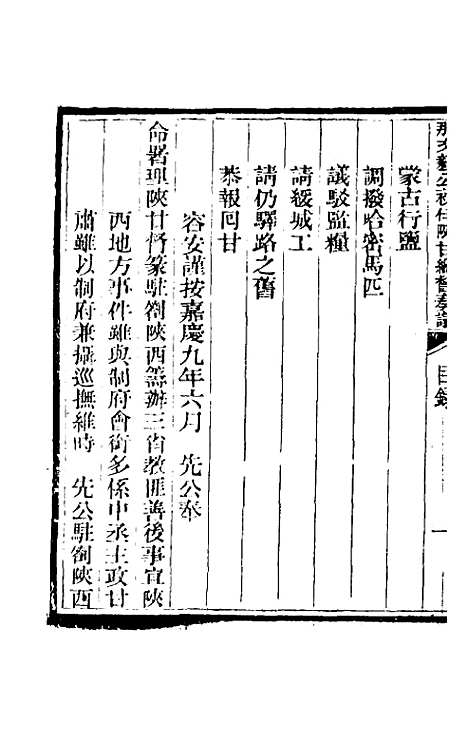 那文毅公初任陝甘總督奏議
目錄
一
蒙古行鹽
調撥哈密馬匹
議駁監糧
請緩城工
請仍驛路之舊
恭報囘甘
容安謹按嘉慶九年六月　先公奉
命署理陝甘督篆駐劄陝西籌辦三省敎匪善後事宜陝
西地方事件雖與制府會銜多係中丞主政甘
肅雖以制府兼攝巡撫維時　先公駐劄陝西